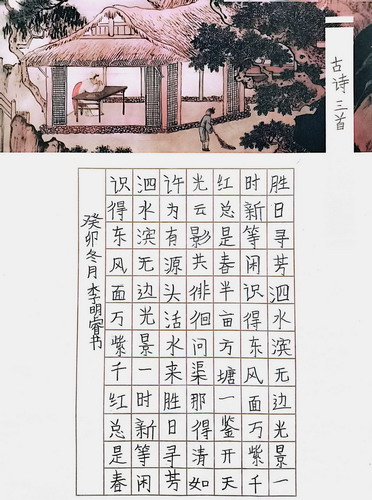 古诗三首
胜日寻芳泗水滨无边光景一
时新等闲识得东风面万紫千
红总是春半亩方塘一鉴开天
光云影共徘徊问渠那得清如
许为有源头活水来胜日寻芳
泗水滨无边光景一时新等闲
识得东风面万紫千红总是春
癸卯冬月李明睿书